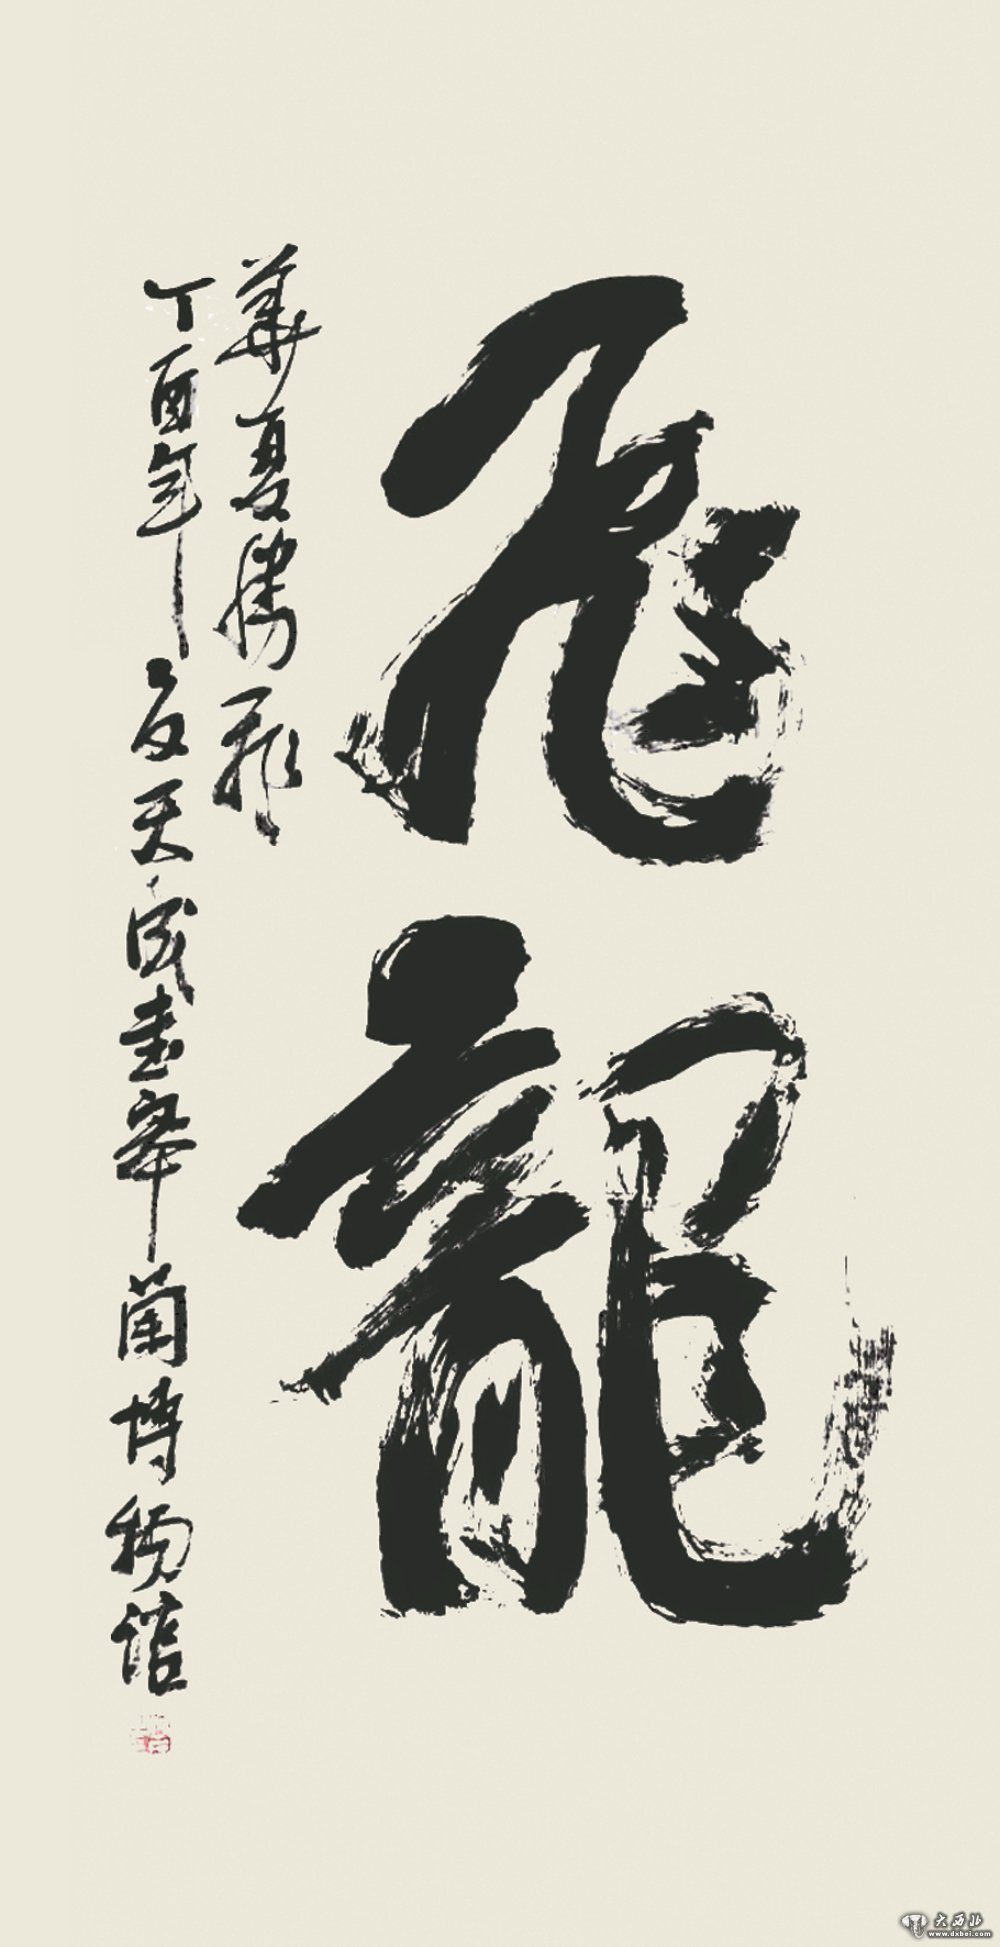 飛龍
華夏腾飛
丁酉年夏天成書於蘭博物馆
大西北
www.dxbei.com